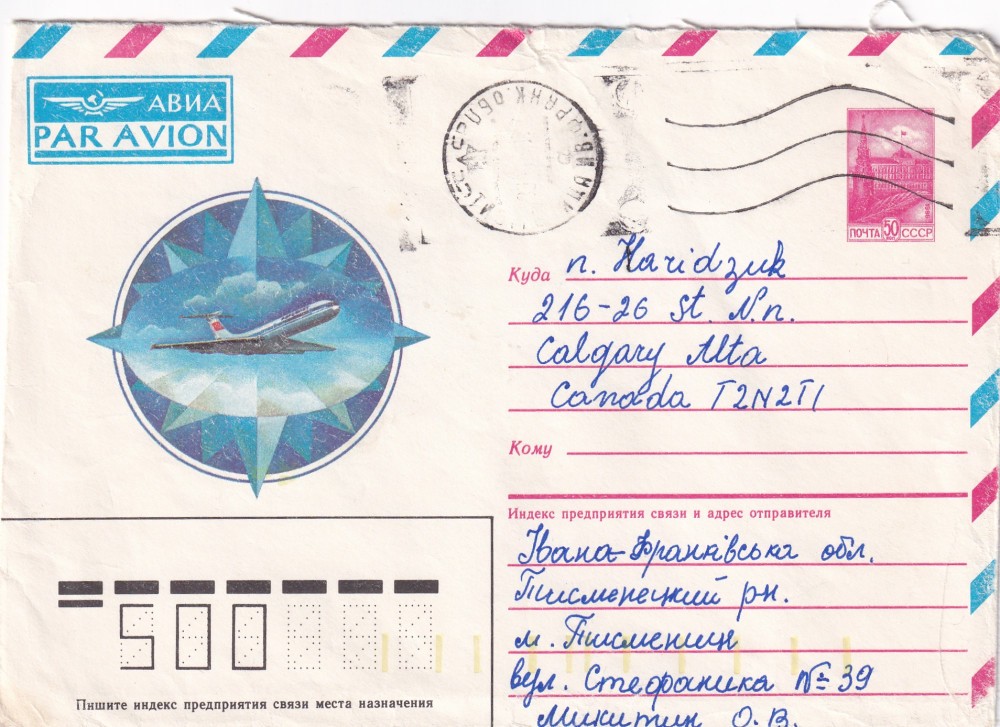 АВИА
PAR AVION
ПОЧТА 50 СССР
Куда n. Haridzuk
216-26 St. N.n.
Calgary Alta
Canada T2N2T1
Кому
Индекс предприятия связи и адрес отправителя
Івано-Франківська обл.
Тисменецький рн.
м. Тисмениця
вул. Стефаника № 39
Микитин О. В.
500
Пишите индекс предприятия связи места назначения